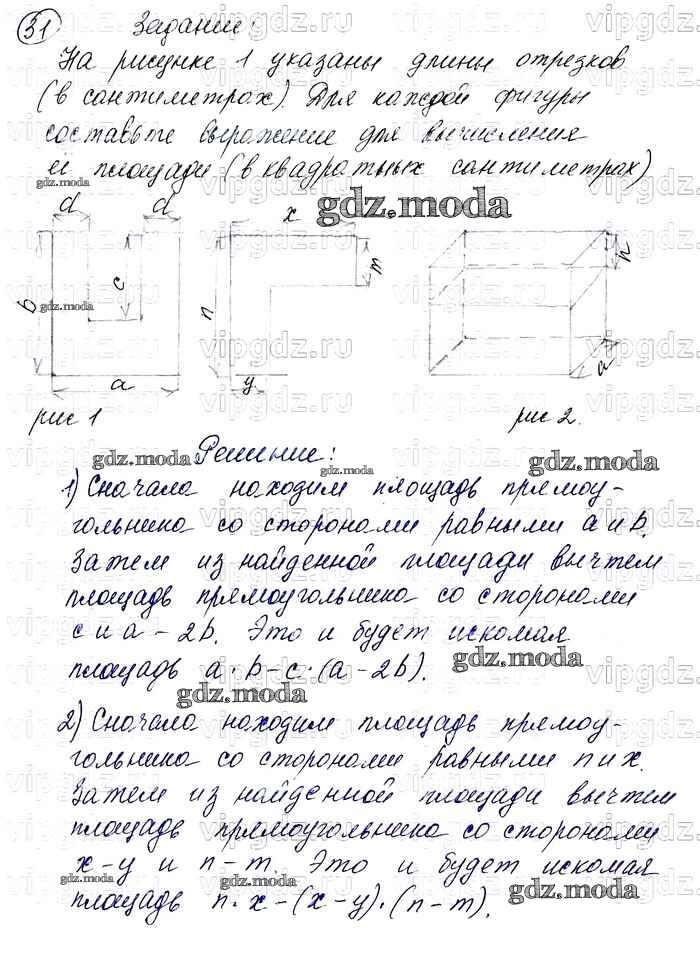 31 Задание:
На рисунке 1 указаны длины отрезков
(в сантиметрах). Для каждой фигуры
составьте выражение для вычисления
её площади (в квадратных сантиметрах)
gdz.moda
gdz.moda
d d x
b c gdz.moda n m h
a y a
рис 1 рис 2.
Решение:
gdz.moda
gdz.moda
1) Сначала находим площадь прямоу-
гольника со сторонами равными a и b.
Затем из найденной площади вычтем
площадь прямоугольника со сторонами
c и a - 2b. Это и будет искомая
площадь a·b-c·(a-2b).
gdz.moda
gdz.moda
2) Сначала находим площадь прямоу-
гольника со сторонами равными n и x.
Затем из найденной площади вычтем
площадь прямоугольника со сторонами
x-y и n-m. Это и будет искомая
gdz.moda gdz.moda
площадь n·x-(x-y)·(n-m).
gdz.moda
vipgdz.ru